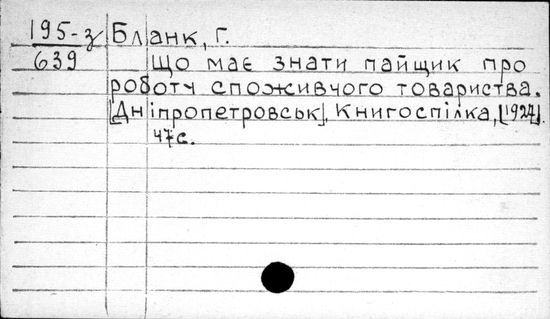 195-з Бланк, Г.
639 Що має знати пайщик про
роботу споживчого товариства.
[Дніпропетровськ], Книгоспілка, [1927].
47с.